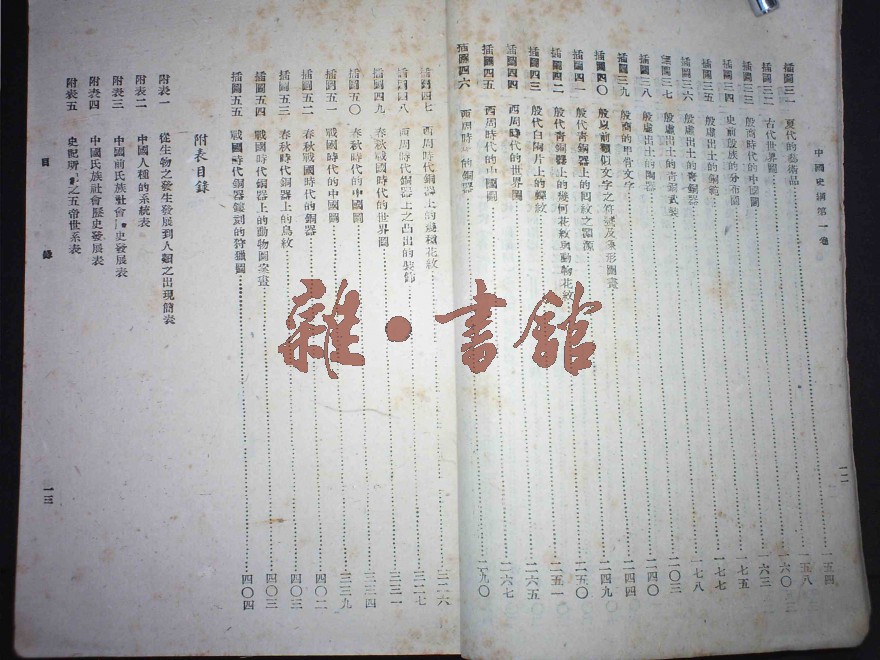 中國史綱第一卷
插圖三一 夏代的藝術品……一五四
插圖三二 古代世界圖……一五八
插圖三三 殷商時代的中國圖……一六〇
插圖三四 史前殷族的分布圖……一六三
插圖三五 殷虛出土的銅範……一七五
插圖三六 殷虛出土的青銅器……一七七
插圖三七 殷虛出土的青銅武裝……一七八
插圖三八 殷虛出土的陶器……二〇三
插圖三九 殷商的甲骨文字……二四〇
插圖四〇 殷以前類似文字之符號及象形圖畫……二四四
插圖四一 殷代青銅器上的回紋之淵源……二四九
插圖四二 殷代青銅器上的幾何花紋與動物花紋……二五〇
插圖四三 殷代白陶片上的雕紋……二五一
插圖四四 西周時代的世界圖……二六五
插圖四五 西周時代的中國圖……二六七
插圖四六 西周時的銅器……九〇
一二
插圖四七 西周時代銅器上的幾種花紋……三一六
插圖四八 西周時代銅器上之凸出的裝飾……三二七
插圖四九 春秋戰國時代的世界圖……三三一
插圖五〇 春秋時代的中國圖……三三四
插圖五一 戰國時代的中國圖……三三九
插圖五二 春秋戰國時代的銅器……四〇二
插圖五三 春秋時代銅器上的鳥紋……四〇三
插圖五四 戰國時代銅器上的動物圖案畫……四〇三
插圖五五 戰國時代銅器鏤刻的狩獵圖……四〇四
附表目錄
附表一 從生物之發生發展到人類之出現簡表
附表二 中國人種的系統表
附表三 中國前氏族社會史發展表
附表四 中國氏族社會歷史發展表
附表五 史記所之五帝世系表
目錄
一三
雜·書館